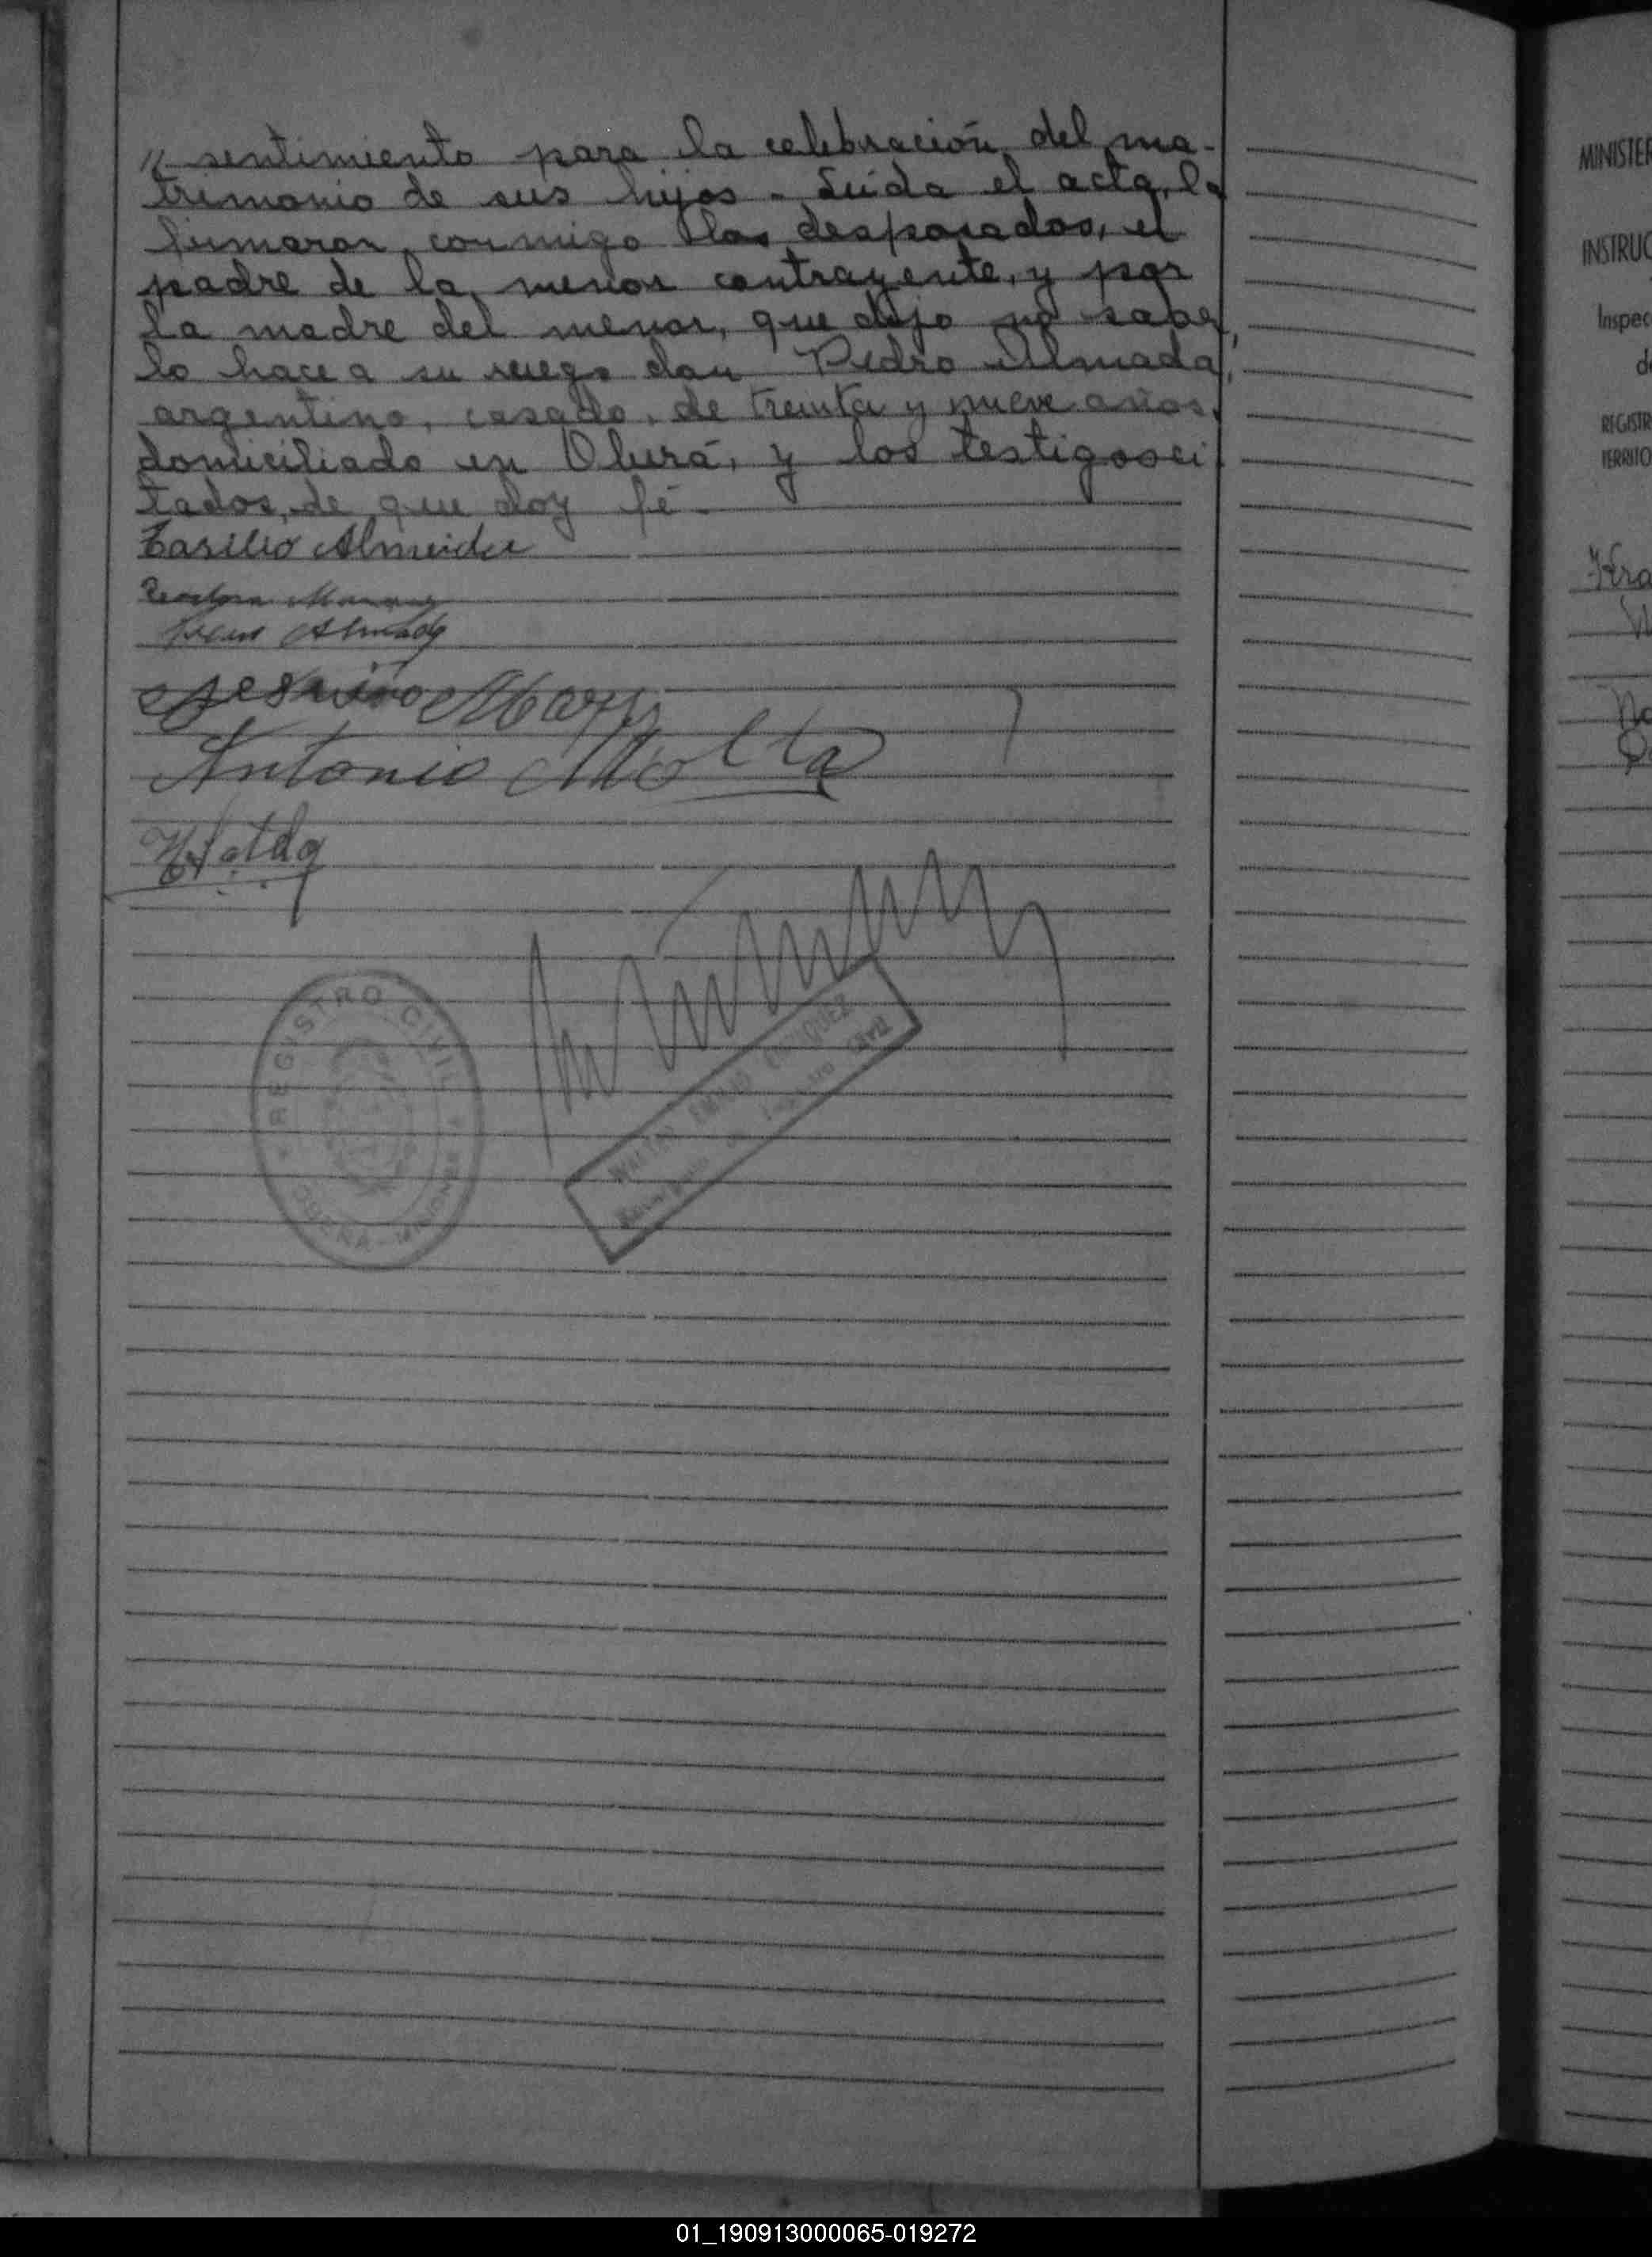 // sentimiento para la celebración del ma-
trimonio de sus hijos - Leída el acta, la
firmaron conmigo los desposados, el
padre de la menor contrayente, y por
la madre del menor, que dijo no saber,
lo hace a su ruego don Pedro Almada,
argentino, casado, de treinta y nueve años,
domiciliado en Oberá, y los testigos ci
tados, de que doy fé -
Basilio Almeida
Almada
Antonio Motta
REGISTRO CIVIL
OBERÁ - MISIONES
Registro Civil
MINISTER
INSTRUC
Inspec
d
REGISTR
TERRITO
01_190913000065-019272